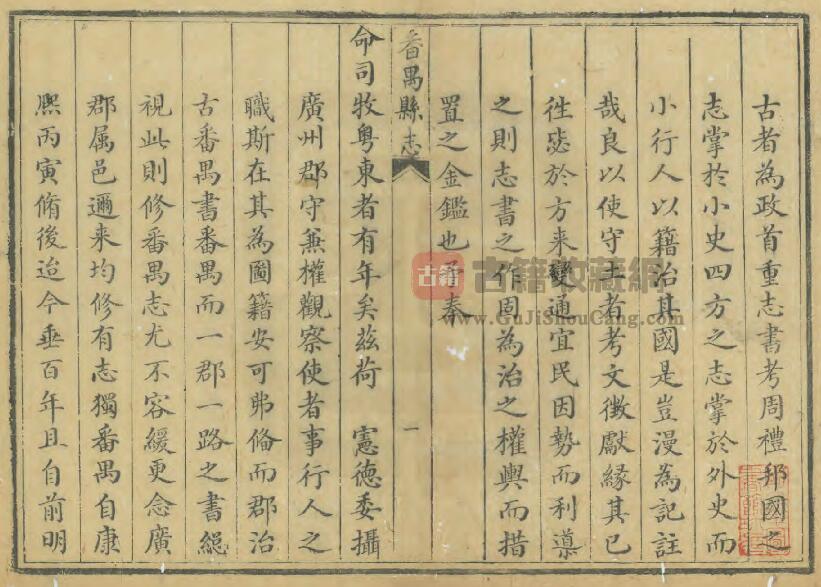 古者為政首重志書考周禮邦國之
志掌於小史四方之志掌於外史而
小行人以籍治其國是豈漫為記註
哉良以使守土者考文徵獻緣其已
徃惩於方来變通宜民因勢而利導
之則志書之作固為治之權輿而措
置之金鑑也予奉
番禺縣志
一
命司牧粤東者有年矣茲荷 憲德委攝
廣州郡守兼權觀察使者事行人之
職斯在其為圖籍安可弗偹而郡治
古番禺書番禺而一郡一路之書緫
視此則修番禺志尤不容緩更念廣
郡属邑邇来均修有志獨番禺自康
熈丙寅脩後迨今垂百年且自前明
古籍
古籍收藏網
www.GuJiShouCang.com